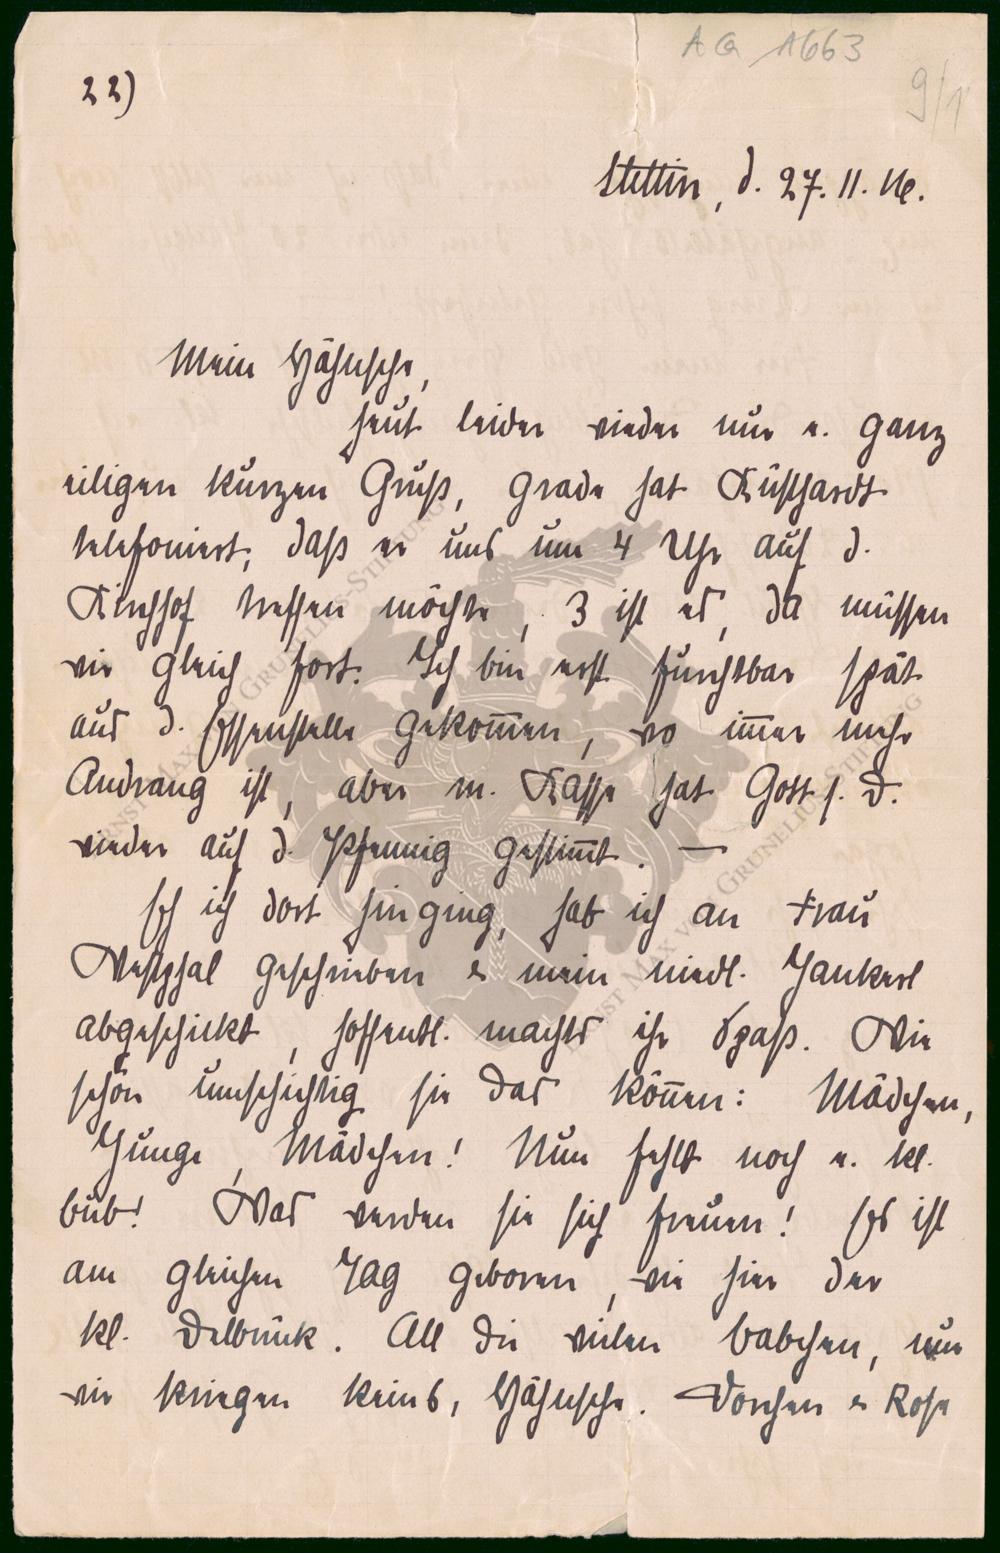 AQ 1663
9/1
22)
Stettin, d. 27. 11. 16.
Mein Hähnsche,
heut leider wieder nur e. ganz
eiligen kurzen Gruß, grade hat Küsthardt
telefoniert, daß er uns um 4 Uhr auf d.
Kirchhof treffen möchte, 3 ist es, da müssen
wir gleich fort. Ich bin erst furchtbar spät
aus d. Essenstelle gekom̅en, wo im̅er mehr
Andrang ist, aber m. Kasse hat Gott s. D.
wieder auf d. Pfennig gestim̅t. —
Eh ich dort hinging, hab ich an Frau
Westphal geschrieben & mein niedl. Jankerl
abgeschickt, hoffentl. machts ihr Spaß. Wie
schön umschichtig sie das kön̅en: Mädchen,
Junge, Mädchen! Nun fehlt noch e. kl.
bub! Was werden sie sich freuen! Es ist
am gleichen Tag geboren, wie hier der
kl. Delbrück. All die vielen babchen, nur
wir kriegen keins, Hähnsche. Dorchen & Rose
ERNST MAX VON GRUNELIUS-STIFTUNG
ERNST MAX VON GRUNELIUS-STIFTUNG